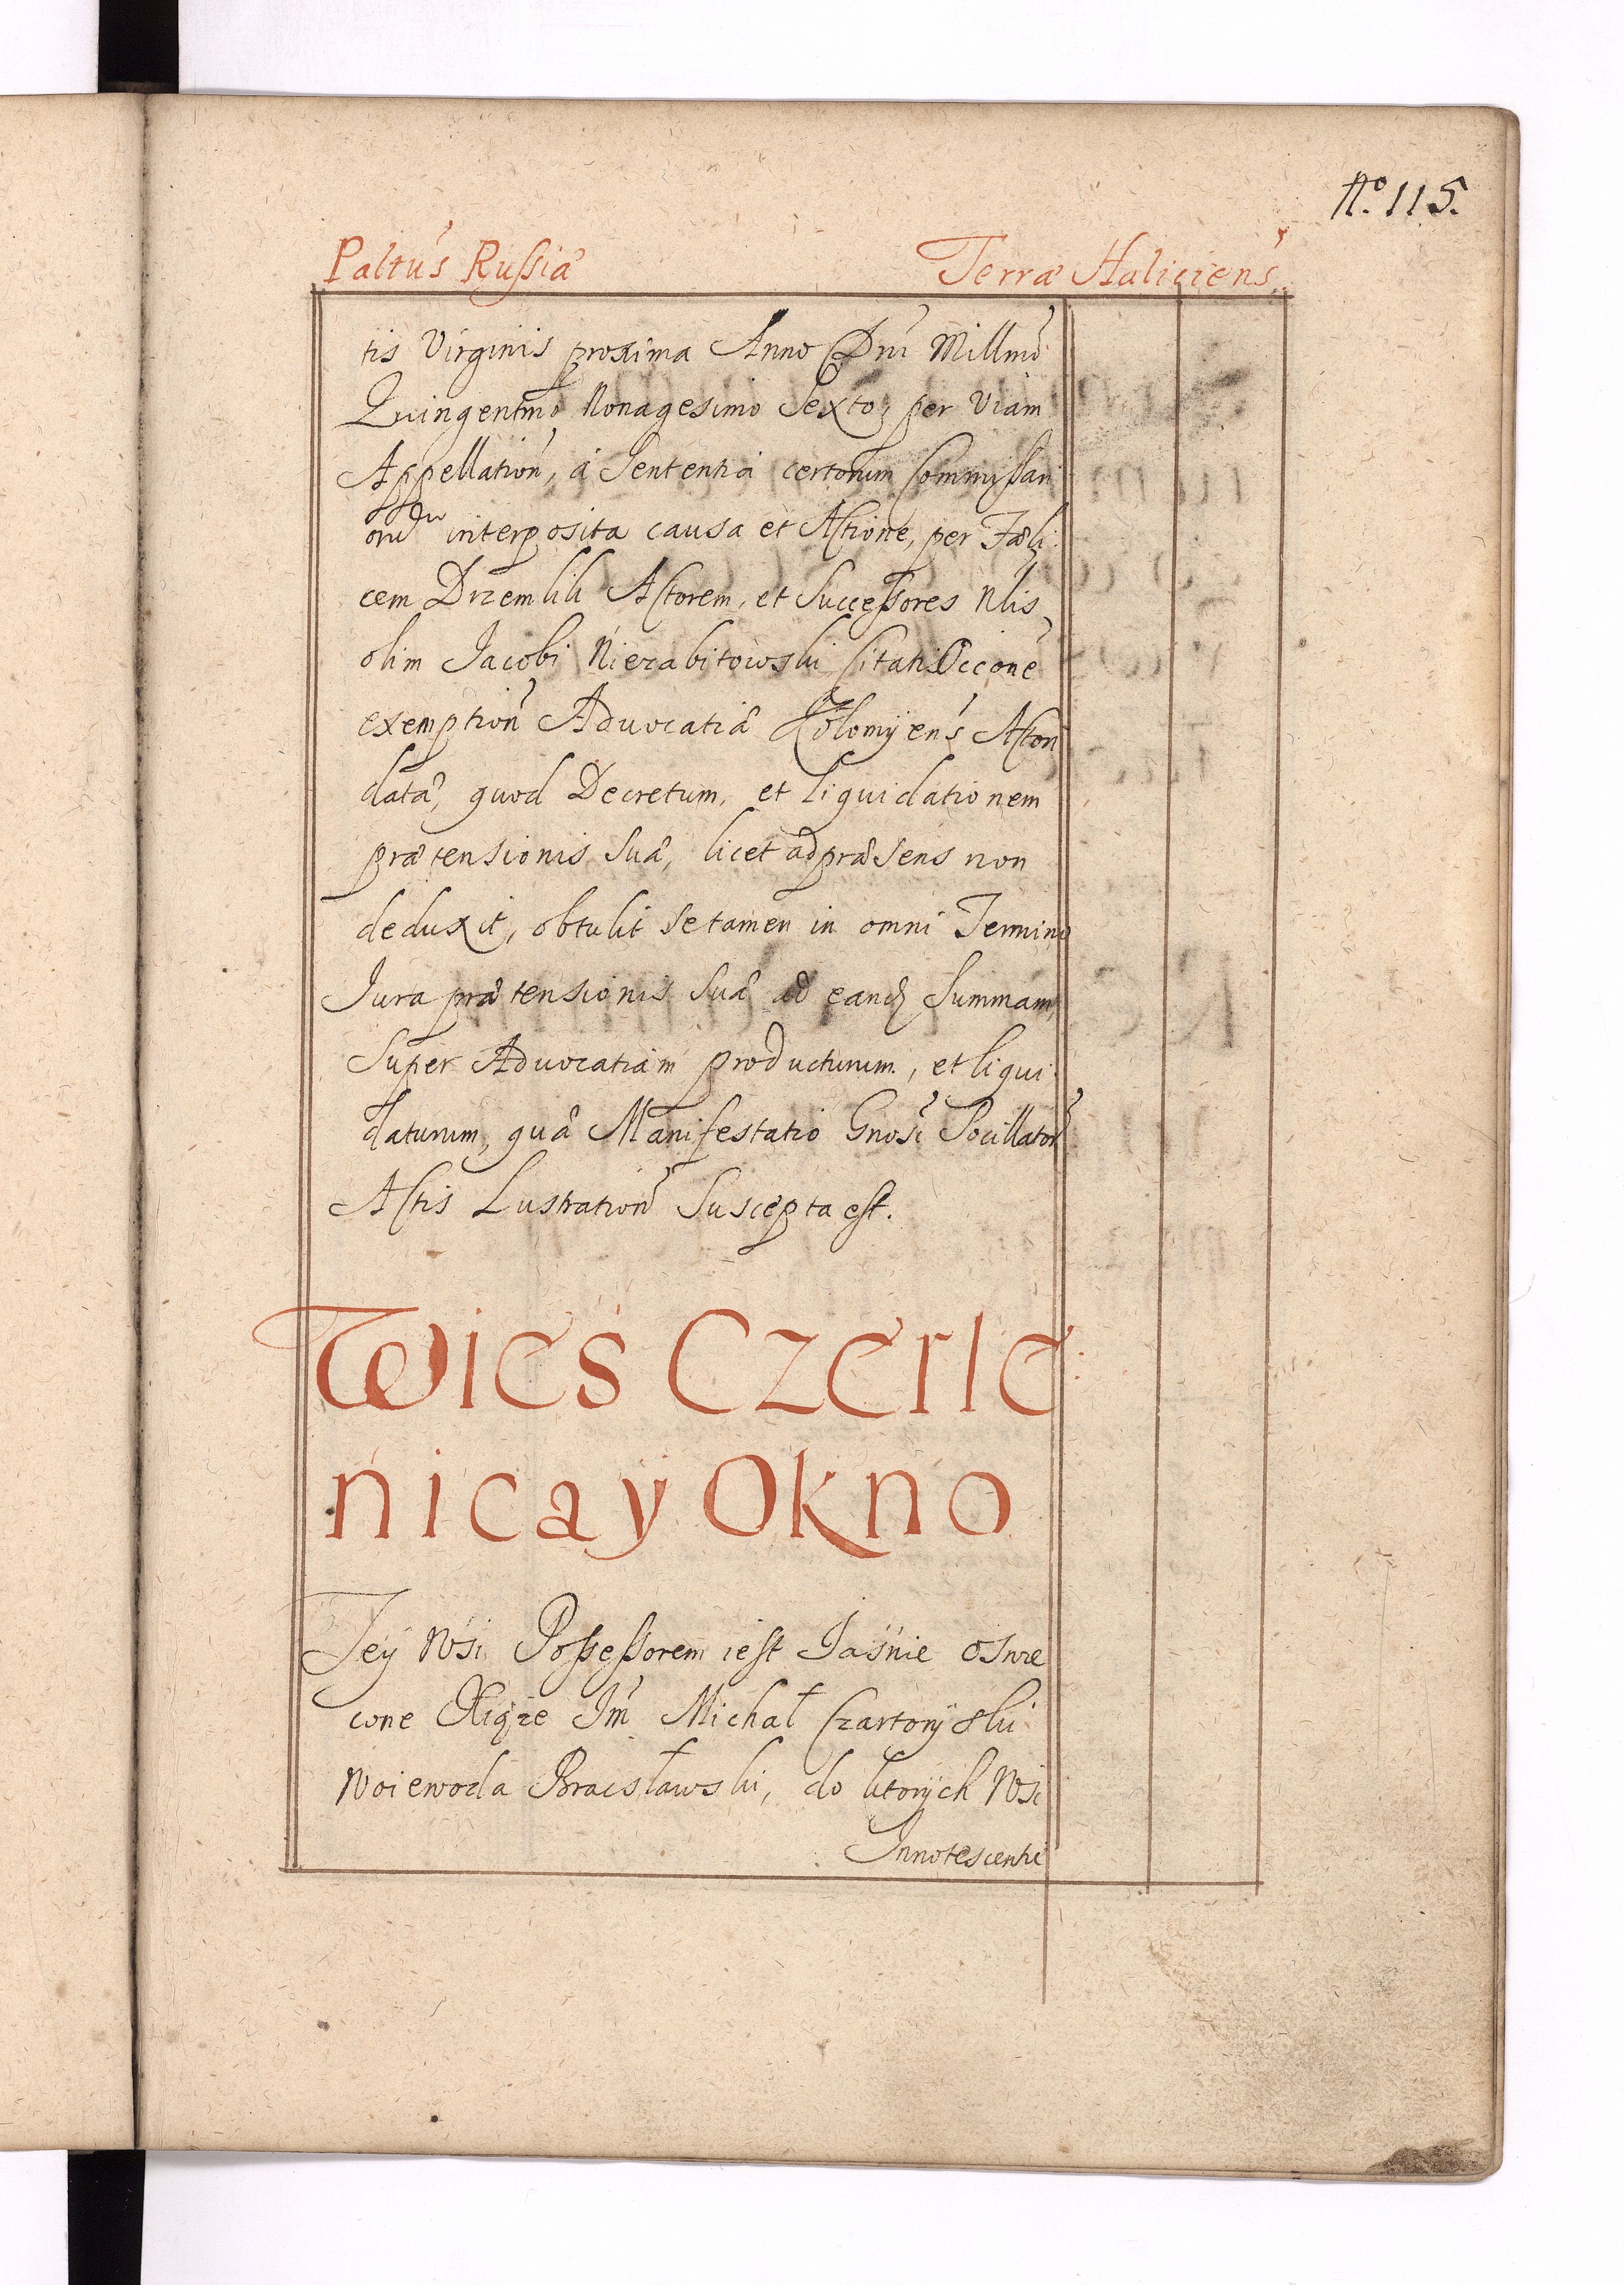 No. 115.
Paltus Russiæ Terræ Haliciens.
tis Virginis proxima Anno Dni Millmo
Quingentmo Nonagesimo Sexto, per Viam
Appellation, á Sententia certorum Commissari
oru interposita causa et Actione, per Fæli
cem Drzemliki Actorem, et Successores Nlis
olim Jacobi Niezabitowski Citatis Occone
exemption Advocatiæ Kolomyens Actori
data, quod Decretum, et liquidationem
prætensionis Suæ, licet ad præsens non
deduxit, obtulit se tamen in omni Termino
Jura prætensionis Suæ ad eand Summam,
Super Advocatiam producturum, et liqui
daturum, quæ Manifestatio Gnosi Pocillator
Actis Lustration Suscepta est.
Wieś Czerle:
nica y Okno
Tey Wsi Possessorem iest Jaśnie oswie
cone Xiąże Jm Michał Czartoryski
Woiewoda Bracsławski, do ktorych Wsi
Innotescentie